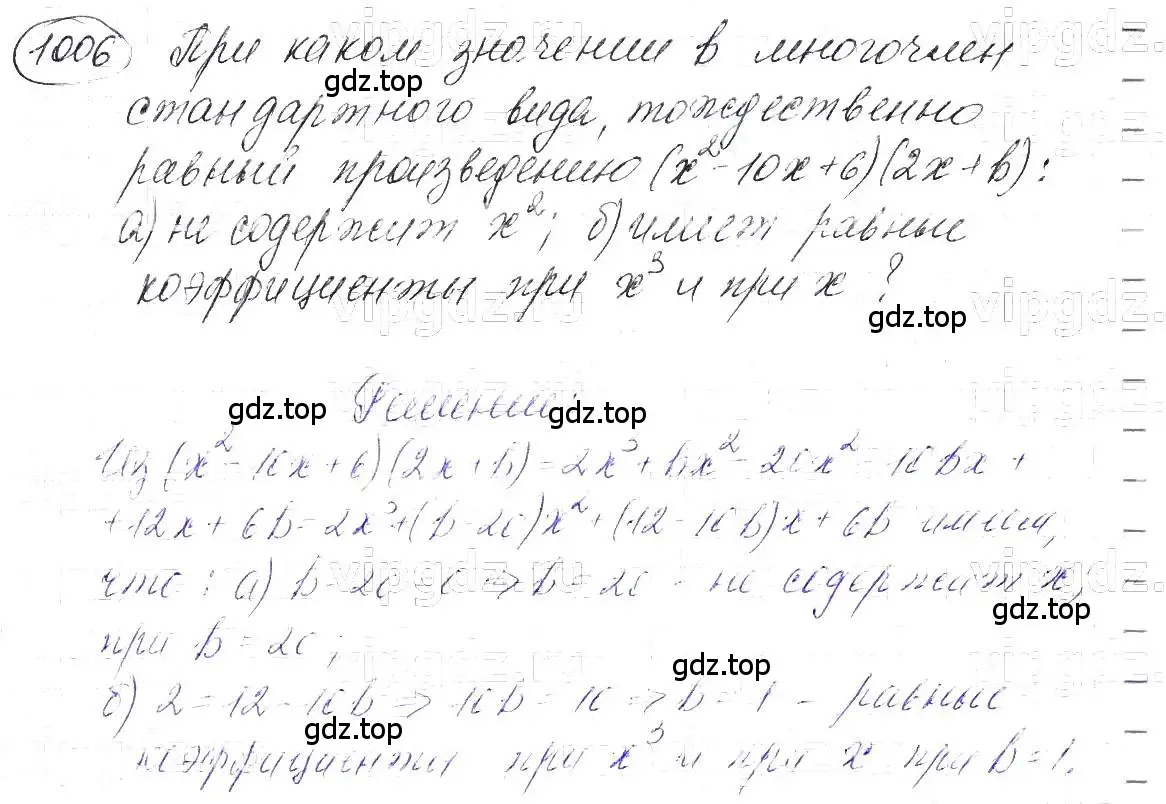 1006 При каком значении b многочлен
gdz.top
стандартного вида, тождественно
равный произведению (x²-10x+6)(2x+b):
а) не содержит x²; б) имеет равные
коэффициенты при x³ и при x?
gdz.top
Решение:
gdz.top gdz.top
Из (x²-10x+6)(2x+b)=2x³+bx²-20x²-10bx+
+12x+6b=2x³+(b-20)x²+(12-10b)x+6b имеем,
что: а) b-20=0 ⇒ b=20 - не содержит x,
gdz.top
при b=20;
gdz.top
б) 2=12-10b ⇒ 10b=10 ⇒ b=1 - равные
gdz.top
коэффициенты при x³ и при x при b=1.